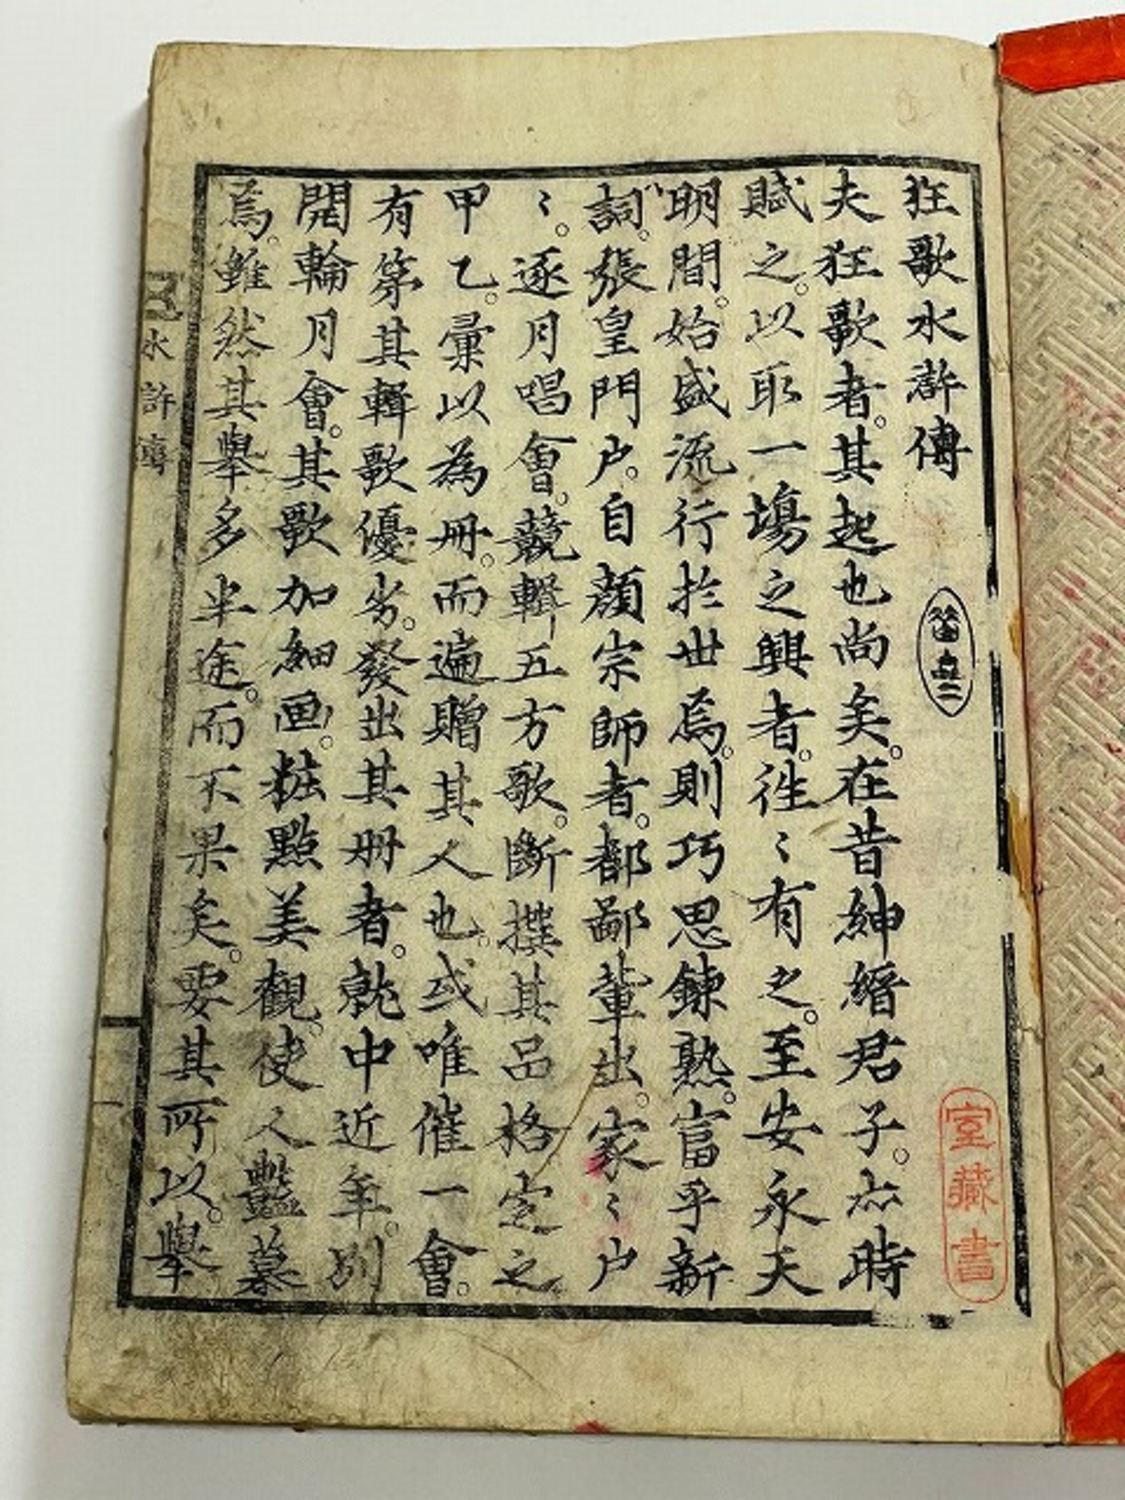 狂歌水滸傳
室藏書
夫狂歌者。其起也尚矣。在昔紳縉君子。亦時
賦之。以取一塲之興者。徃〻有之。至安永天
明間。始盛流行於世焉。則巧思鍊熟。富乎新
詞。張皇門户。自顔宗師者。都鄙輩出。家〻户
〻。逐月唱會。競輯五方歌。斷撰其品格定之
甲乙。彙以為册。而遍贈其人也。或唯催一會。
有第其輯歌優劣。發出其册者。就中近年。別
開輪月會。其歌加細画。粧點美觀。使人豔慕
焉。雖然其舉多半途。而不果矣。要其所以。舉
水滸傳
一